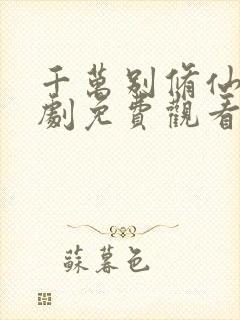 千萬別脩仙
劇免費觀看
蘇暮色